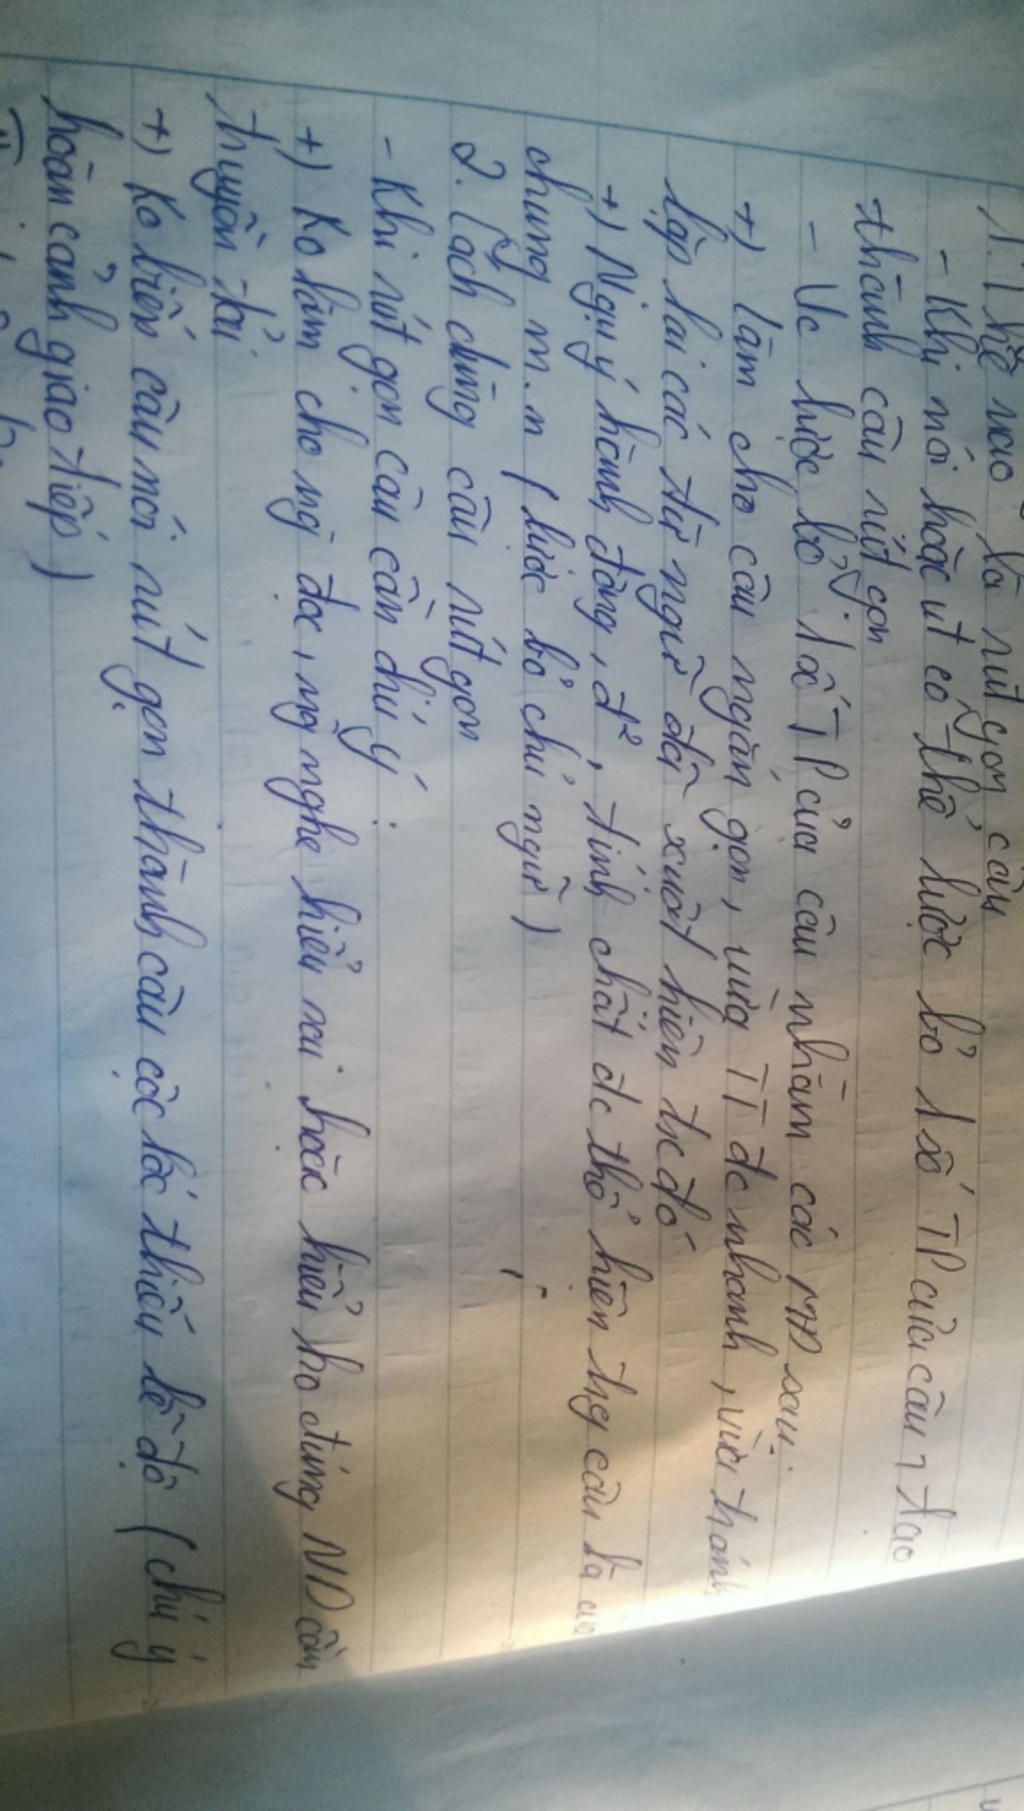 1. Thế nào là rút gọn câu
- Khi nói hoặc viết có thể lược bỏ 1 số TP của câu, tạo
thành câu rút gọn
- Vc lược bỏ 1 số TP của câu nhằm các MĐ sau:
+) Làm cho câu ngắn gọn, vừa TT đc nhanh, vừa tránh
lặp lại các từ ngữ đã xuất hiện trc đó
+) Ngụ ý hành động, đ², tính chất đc thể hiện trg câu là của
chung m.n (lược bỏ chủ ngữ)
2. Cách dùng câu rút gọn
- Khi rút gọn câu cần chú ý:
+) Ko làm cho ng đọc, ng nghe hiểu sai hoặc hiểu ko đúng ND cần
truyền tải
+) Ko biến câu nói rút gọn thành câu cộc lốc thiếu lễ độ (chú ý
hoàn cảnh giao tiếp)